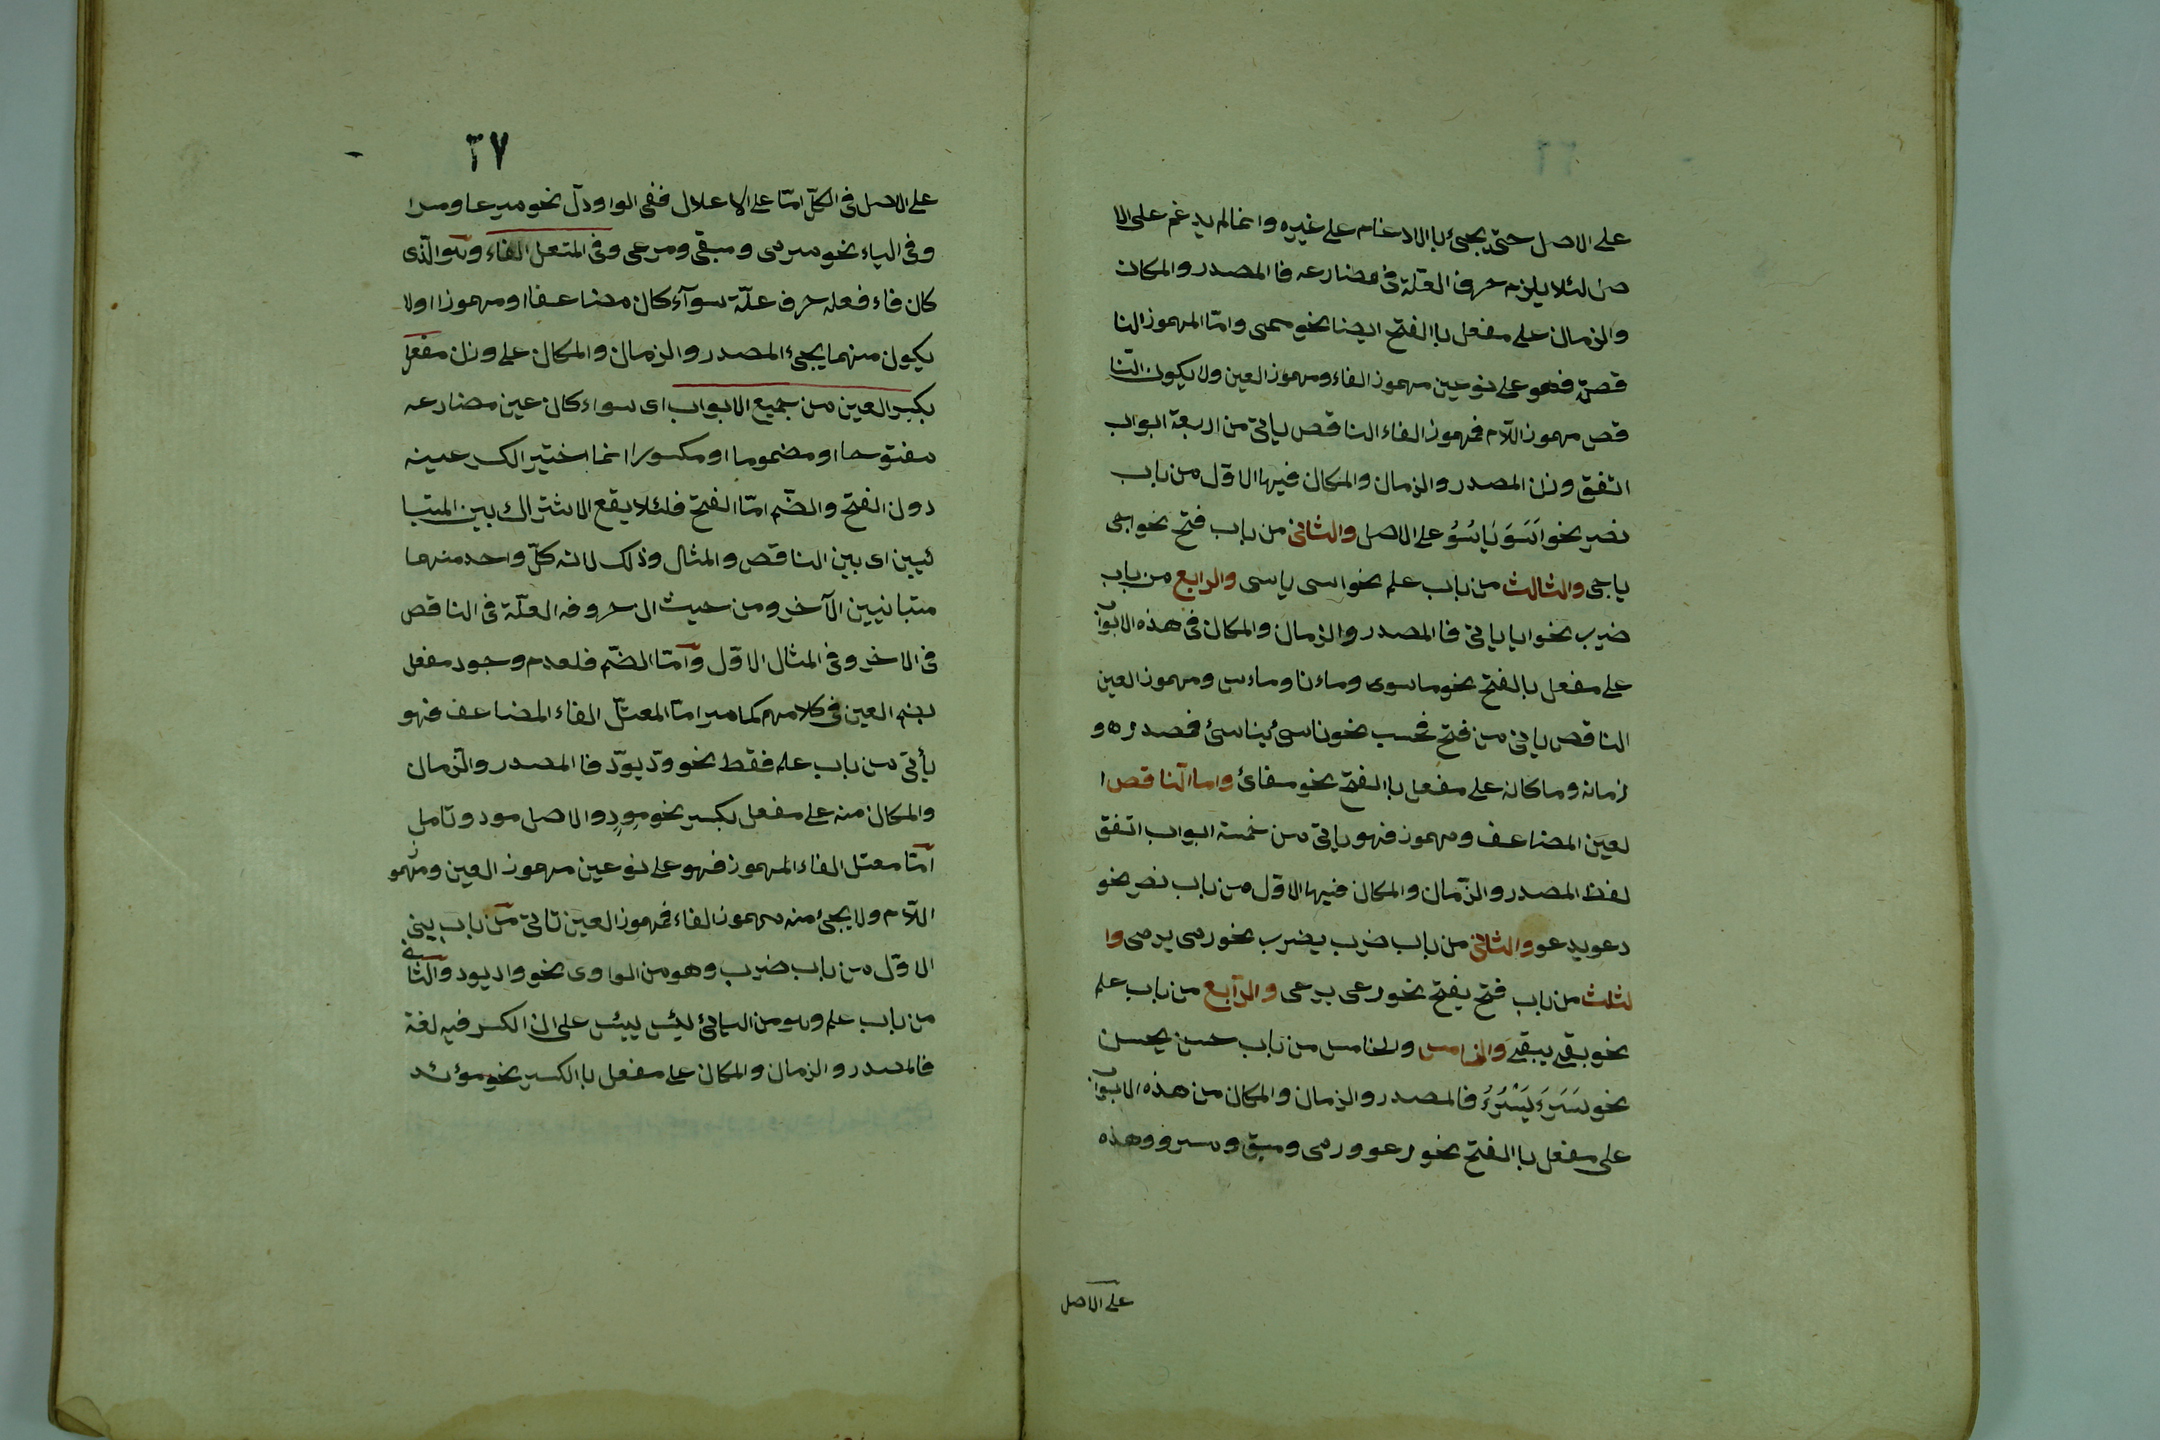 على الاصل حتى يجئ بالادغام على غيره وانما لم يدغم على الا
صل لئلا يلزم حرف العلّة فى مضارعه فالمصدر والمكان
والزمان على مفعل باالفتح ايضا نحو محيى وامّا المهموز النا
قصة فهو على نوعين مهموز الفاء ومهموز العين ولا يكون النّا
قص مهموز اللّام فمهموز الفاء الناقص ياتى من اربعة ابواب
اتفق وزن المصدر والزمان والمكان فيها الاوّل من باب
نصر نحو اَسَوَ يَاسُوُ على الاصل والثانى من باب فتح نحو اجى
ياجى والثالث من باب علم نحو اسى ياسى والرابع من باب
ضرب نحو ايا ياتى فا المصدر والزمان والمكان فى هذه الابواب
على مفعل بالفتح نحو ماسوى وماءنا وماءس ومهموز العين
الناقص ياتى من فتح فحسب نحو ناسئ يناسئ فمصدره و
زمانه ومكانه على مفعل باالفتح نحو مفائ واما الناقص ا
لعين المضاعف ومهموز فهو ياتى من خمسة ابواب اتفق
لفظ المصدر والزّمان والمكان فيها الاوّل من باب نصر نحو
دعو يدعو والثانى من باب ضرب يضرب نحو رمى يرمى وا
لثلث من باب فتح يفتح نحو رعى يرعى والرّابع من باب علم
نحو بقى يبقى والخامس والخامس من باب حسن يحسن
نحو سَرَءَ يَسْرُءُ فالمصدر والزمان والمكان من هذه الابواب
على مفعل باالفتح نحو رعو ورمى ومبق وسرو وهذه
على الاصل
٢٧
على الاصل فى الكلّ امّا على الاعلال ففى الواو دلّ نحو مدعا ومسرا
وفى الياء نحو مرمى ومبقى ومرعى وفى المتعل الفاء وهو الّذى
كان فاء فعله حرف علّة سوآء كان مضاعفا او مهموزا اولا
يكون منهما يجئ المصدر والزمان والمكان على وزن مفعل
بكسر العين من جميع الابواب اى سواء كان عين مضارعه
مفتوحا او مضموما او مكسورا انما اختير الكسر عينه
دون الفتح والضّم امّا الفتح فلئلا يقع الاشتراك بين المتبا
ئيين اى بين الناقص والمثال وذلك لانه كلّ واحد منهما
متبانيين الآخر ومن حيث ان حروفه العلّة فى الناقص
فى الاخر وفى المثال الاوّل وامّا الضّم فلعدم وجود مفعل
بضم العين فى كلامهم كما مير امّا المعتلّ الفاء المضاعف فهو
يأتى من باب علم فقط نحو ودّ يودّ فا المصدر والزمان
والمكان منه على مفعل بكسر نحو مودِ والاصل مودد وتامل
امّا معتل الفاء المهموز فهو على نوعين مهموز العين ومهموز
اللّام ولا يجئ منه مهموز الفاء فمهموز العين تاتى من باب ينى
الاوّل من باب ضرب وهو من الواوى نحو واد يود والثّانى
من باب علم وهو من اليائئ ليئس ييئس على ان الكسر فيه لغة
فالمصدر والزمان والمكان على مفعل باالكسر نحو موئد